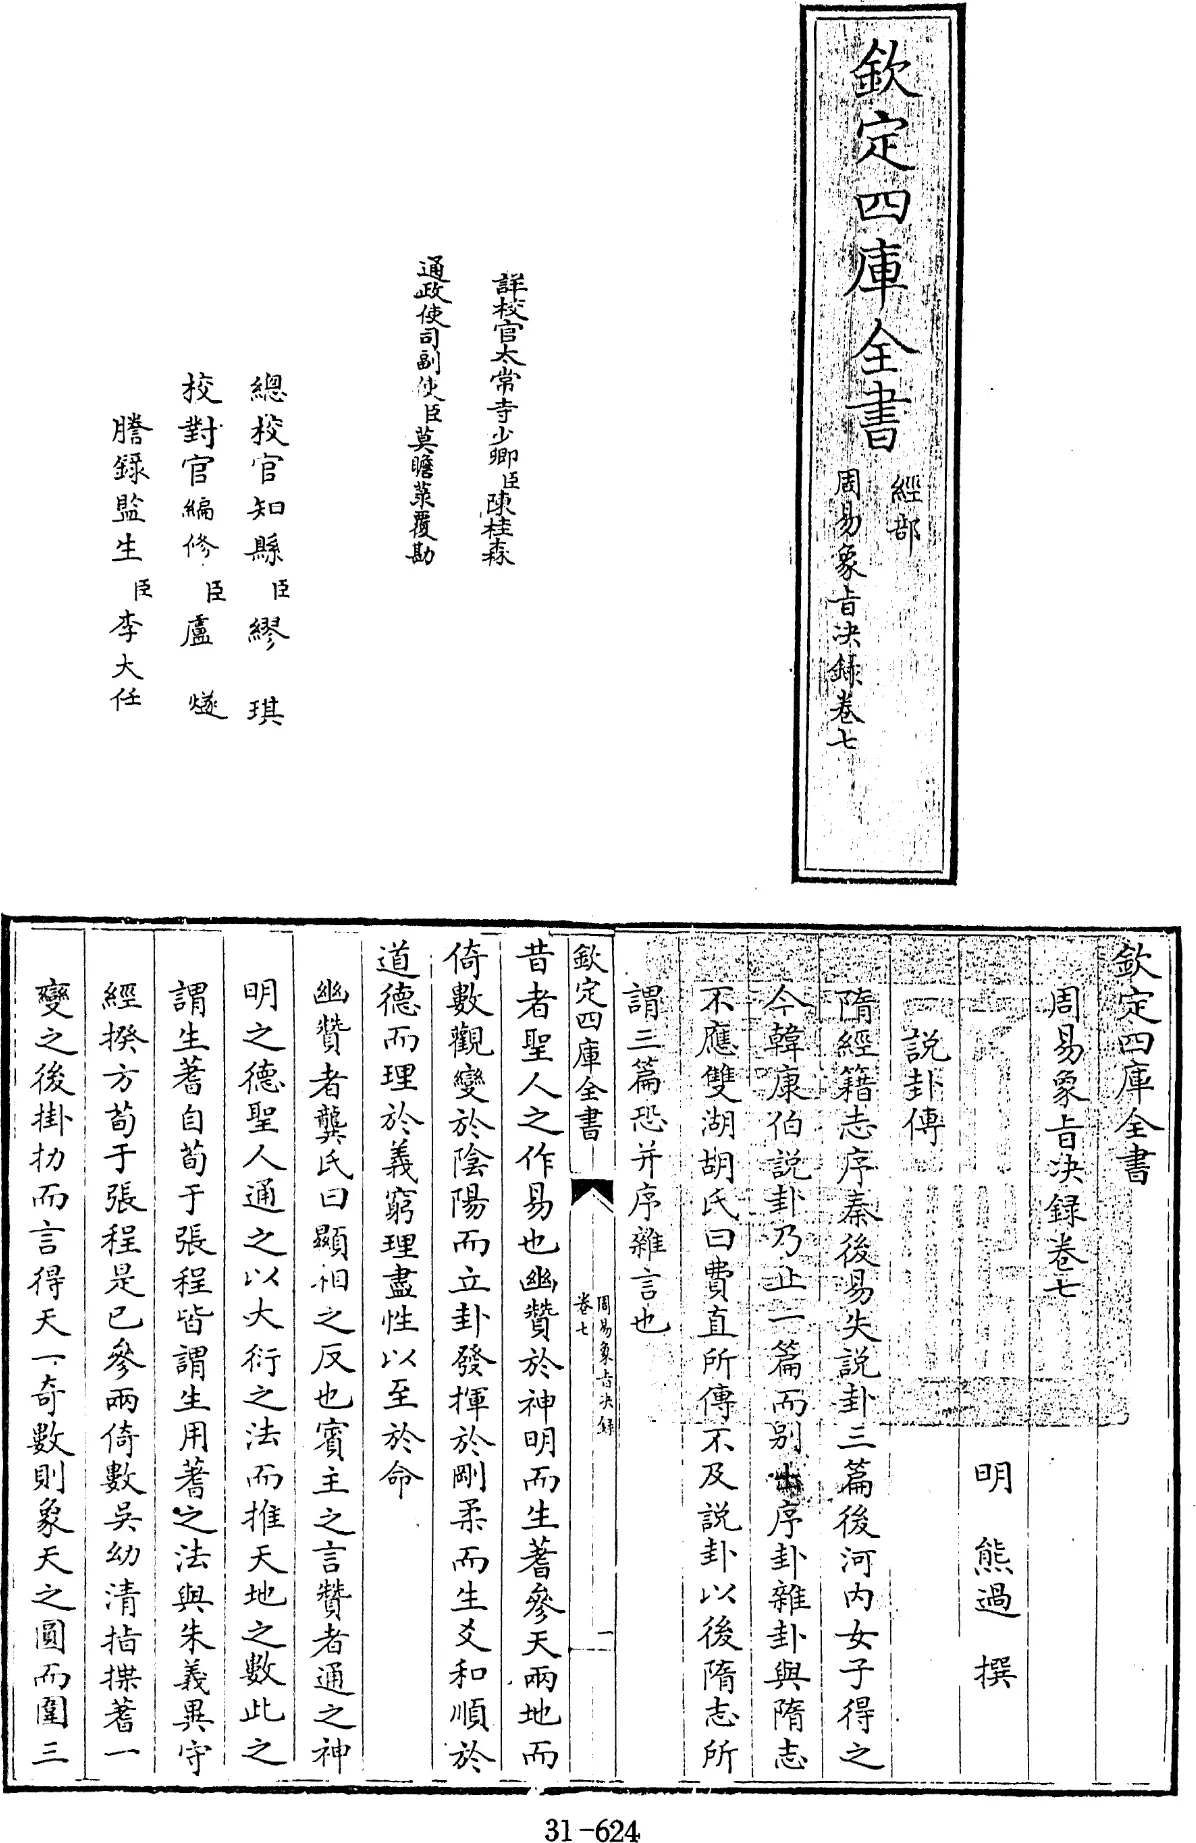 欽定四庫全書
經部
周易象旨决録卷七
詳校官太常寺少卿臣陳桂森
通政使司副使臣莫瞻菉覆勘
總校官知縣臣繆琪
校對官編修臣盧燧
謄録監生臣李大任
欽定四庫全書
周易象旨决録卷七
明 熊過 撰
説卦傳
隋經籍志序秦後易失説卦三篇後河内女子得之
今韓康伯説卦乃止一篇而别出序卦雜卦與隋志
不應雙湖胡氏曰費直所傳不及説卦以後隋志所
謂三篇恐并序雜言也
欽定四庫全書
周易象旨决録
卷七
一
昔者聖人之作易也幽贊於神明而生蓍參天兩地而
倚數觀變於陰陽而立卦發揮於剛柔而生爻和順於
道德而理於義窮理盡性以至於命
幽贊者龔氏曰顯相之反也賓主之言贊者通之神
明之德聖人通之以大衍之法而推天地之數此之
謂生蓍自荀于張程皆謂生用蓍之法與朱義異守
經揆方荀于張程是已參兩倚數吳幼清指揲蓍一
變之後掛扐而言得天一奇數則象天之圓而圍三
31-624